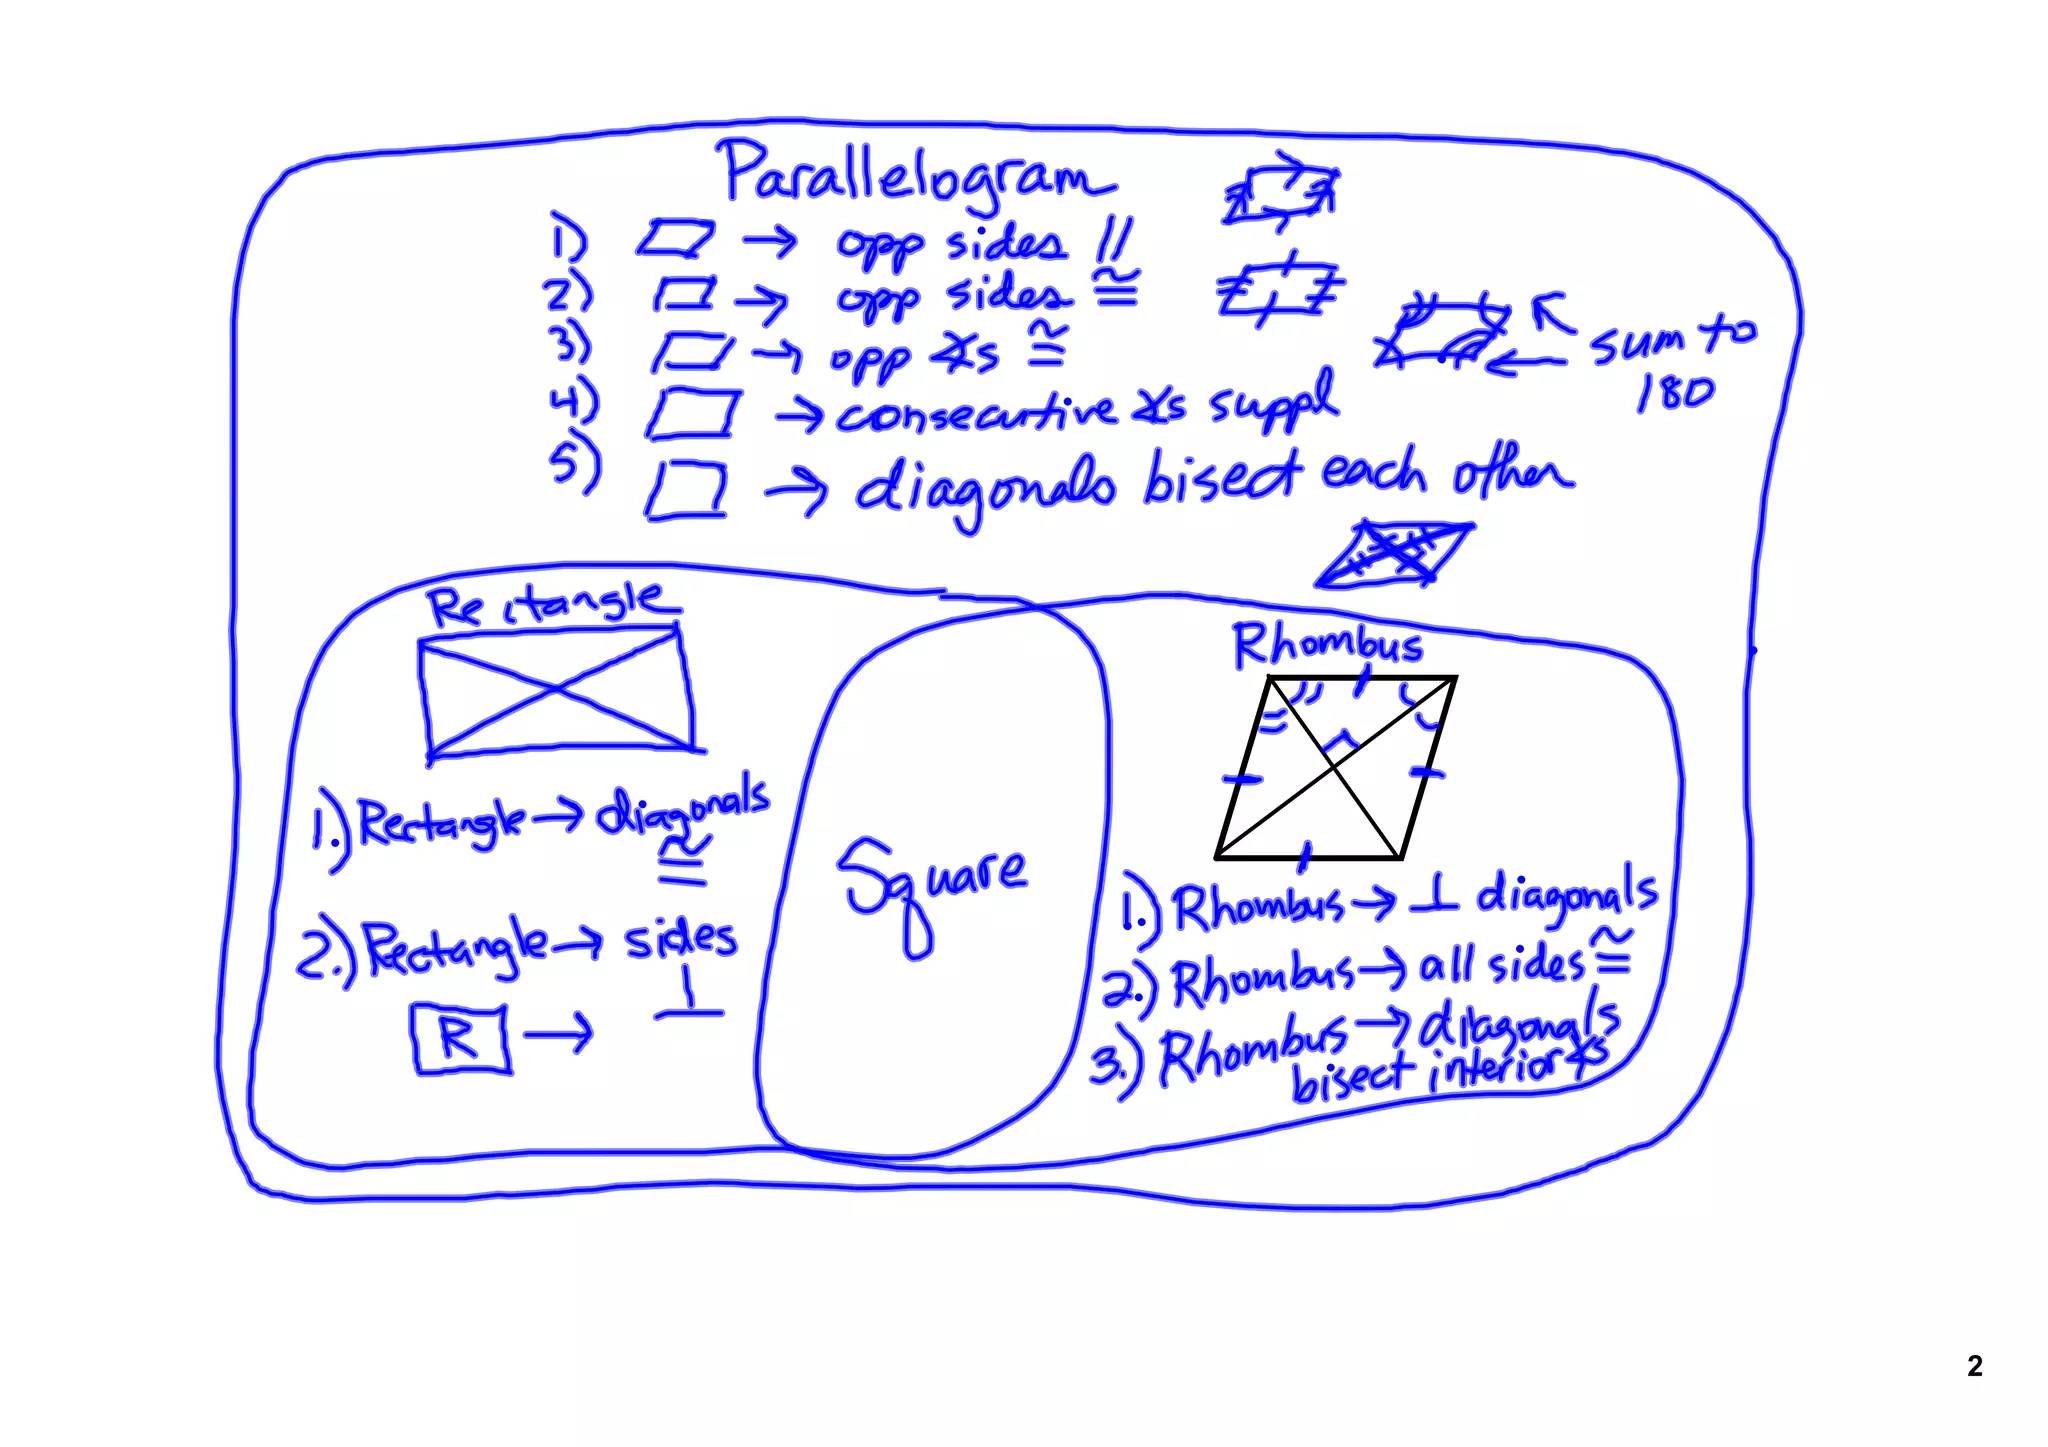 Parallelogram
1) ▱ → opp sides //
2) ▱ → opp sides ≅
3) ▱ → opp ∡s ≅
4) ▱ → consecutive ∡s suppl
5) ▱ → diagonals bisect each other
sum to
180
Rectangle
1.) Rectangle → diagonals
≅
2.) Rectangle → sides
⊥
R →
Square
Rhombus
1.) Rhombus → ⊥ diagonals
2.) Rhombus → all sides ≅
3.) Rhombus → diagonals
bisect interior ∡s
2